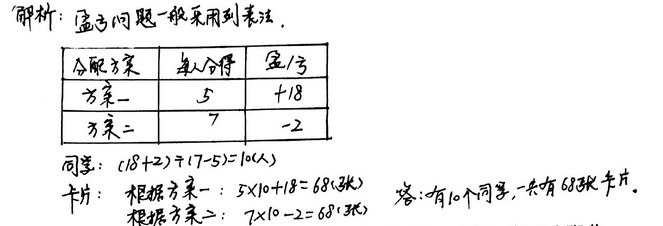 解析：盈亏问题一般采用列表法．
分配方案 每人分得 盈/亏
方案一 5 +18
方案二 7 -2
同学：(18+2)÷(7-5)=10(人)
卡片：根据方案一：5×10+18=68(张)
根据方案二：7×10-2=68(张)
答：有10个同学，一共有68张卡片．